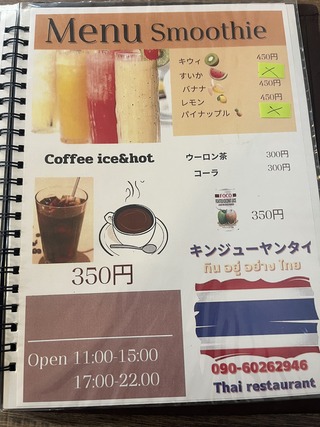 Menu Smoothie
キウィ 450円
すいか
バナナ 450円
レモン 450円
パイナップル
Coffee ice&hot
ウーロン茶 300円
コーラ 300円
FOCO
350円
350円
キンジューヤンタイ
กิน อยู่ อย่าง ไทย
Open 11:00-15:00
17:00-22.00
090-60262946
Thai restaurant